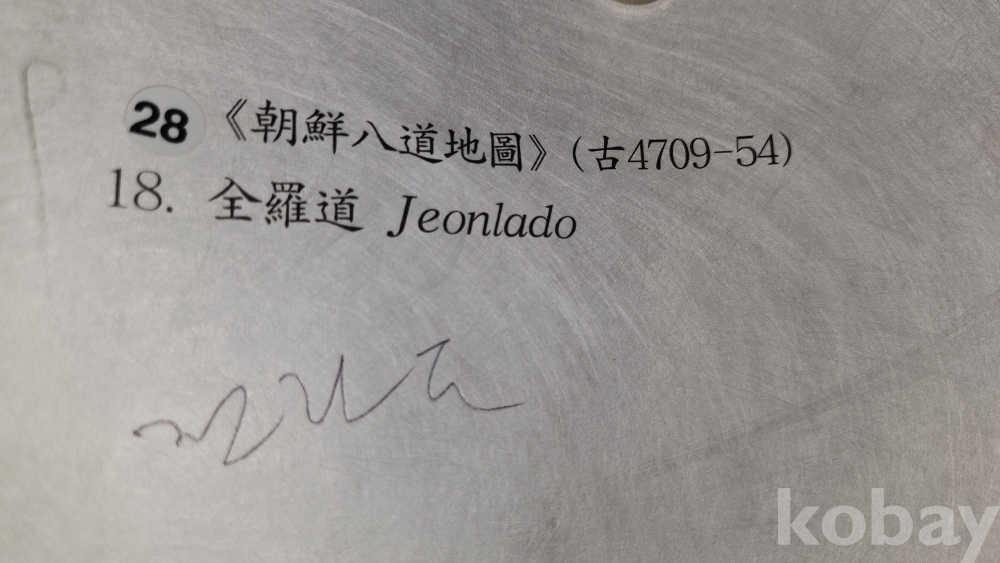 28 《朝鮮八道地圖》(古4709-54)
18. 全羅道 Jeonlado
전라도
kobay